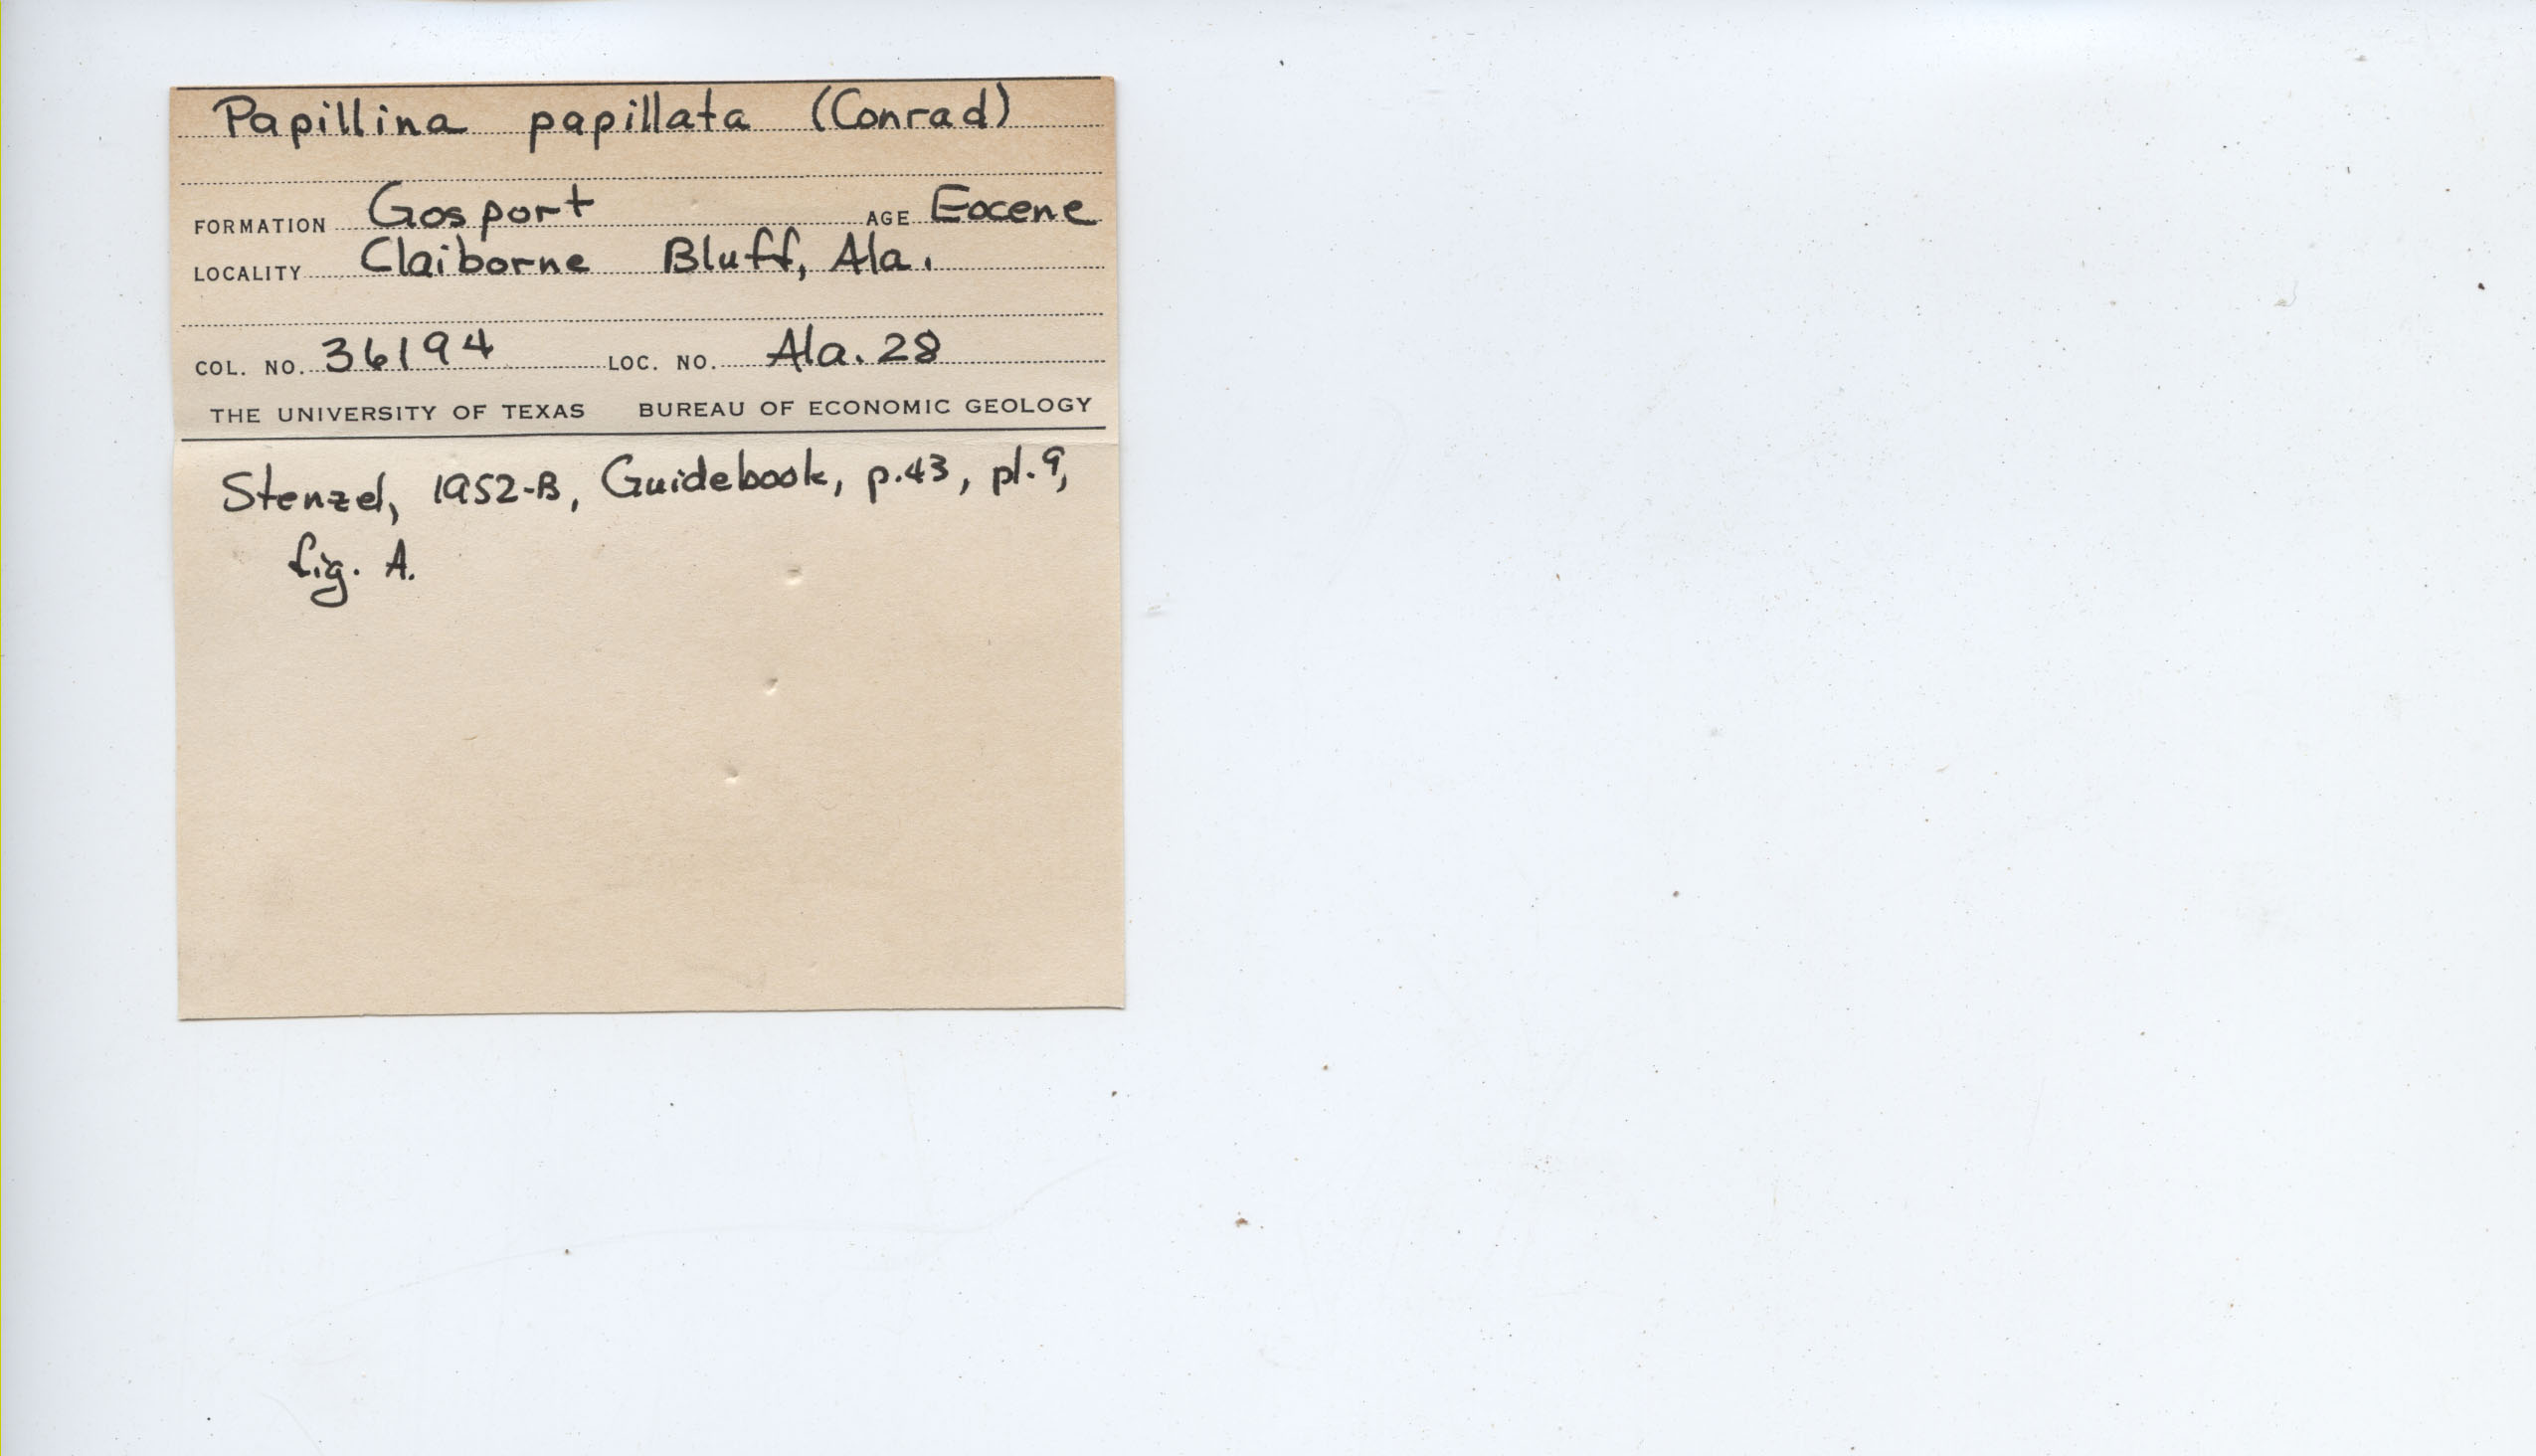 Papillina papillata (Conrad)
FORMATION Gosport AGE Eocene
LOCALITY Claiborne Bluff, Ala.
COL. NO. 36194 LOC. NO. Ala. 28
THE UNIVERSITY OF TEXAS BUREAU OF ECONOMIC GEOLOGY
Stenzel, 1952-B, Guidebook, p.43, pl.9,
fig. A.